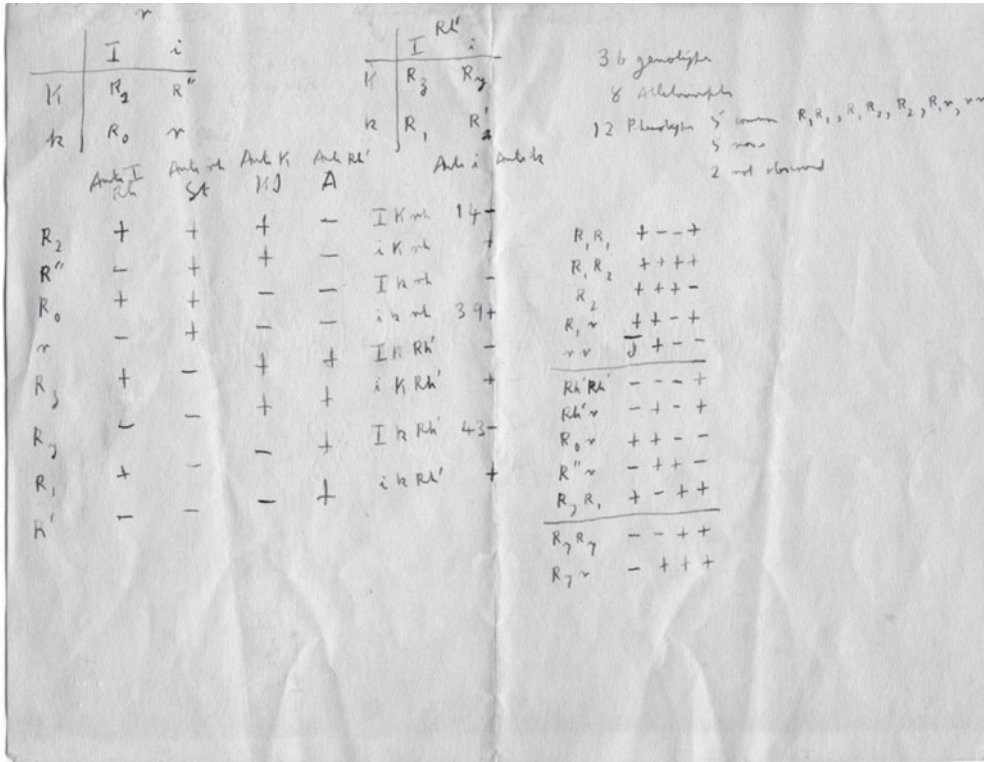 r
I i
K R₂ R"
k R₀ r
Rh'
I i
K R_z R_y
k R₁ R'
36 genotypes
8 Allelomorphs
12 Phenotypes 5 common R₁R₁, R₁R₂, R₂, R₁r, rr
5 rare
2 not observed
Anti I Anti rh Anti K Anti Rh' Anti i Anti k
Rh St A
R₂ + + + - I K rh 14 -
R" - + + - i K rh +
R₀ + + - - I k rh -
r - + - - i k rh 39 +
R_z + - + + I K Rh' -
R_y - - + + i K Rh' +
R₁ + - - + I k Rh' 43 -
R' - - - + i k Rh' +
R₁R₁ + - - +
R₁R₂ + + + +
R₂ + + + -
R₁r + + - +
rr - + - -
Rh'Rh' - - - +
Rh'r - + - +
R₀r + + - -
R"r - + + -
R_zR₁ + - + +
R_yR_y - - + +
R_yr - + + +